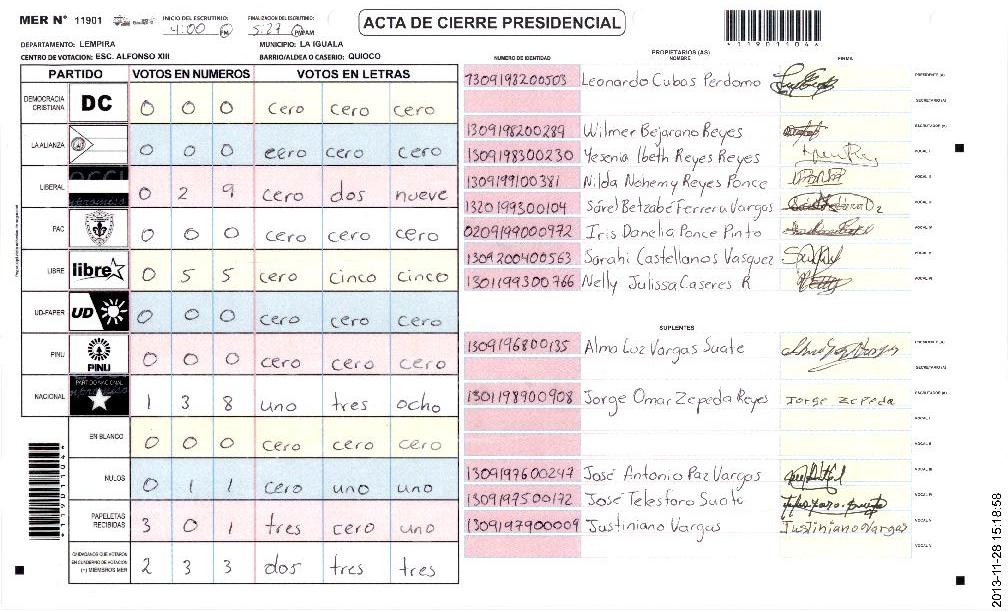 MER N° 11901 INICIO DEL ESCRUTINIO: 4:00 PM FINALIZACION DEL ESCRUTINIO: 5:27 PM/AM
ACTA DE CIERRE PRESIDENCIAL
*1190110４*
DEPARTAMENTO: LEMPIRA MUNICIPIO: LA IGUALA
CENTRO DE VOTACION: ESC. ALFONSO XIII BARRIO/ALDEA O CASERIO: QUIOCO
PARTIDO VOTOS EN NUMEROS VOTOS EN LETRAS
DEMOCRACIA CRISTIANA DC 0 0 0 cero cero cero
LA ALIANZA 0 0 0 cero cero cero
LIBERAL 0 2 9 cero dos nueve
PAC 0 0 0 cero cero cero
LIBRE libre 0 5 5 cero cinco cinco
UD-FAPER UD 0 0 0 cero cero cero
PINU PINU 0 0 0 cero cero cero
NACIONAL PARTIDO NACIONAL 1 3 8 uno tres ocho
EN BLANCO 0 0 0 cero cero cero
NULOS 0 1 1 cero uno uno
PAPELETAS RECIBIDAS 3 0 1 tres cero uno
CIUDADANOS QUE VOTARON EN CUADERNO DE VOTACION (+) MIEMBROS MER 2 3 3 dos tres tres
PROPIETARIOS (AS)
NUMERO DE IDENTIDAD NOMBRE FIRMA
1309198200503 Leonardo Cubas Perdomo PRESIDENTE (A)
SECRETARIO (A)
1309198200289 Wilmer Bejarano Reyes ESCRUTADOR (A)
1309198300230 Yesenia Ibeth Reyes Reyes VOCAL I
1309199100381 Nilda Nohemy Reyes Ponce VOCAL II
1320199300104 Sárel Betzabé Ferrera Vargas VOCAL III
0209199000972 Iris Danelia Ponce Pinto VOCAL IV
1309200400563 Sarahi Castellanos Vasquez VOCAL V
1301199300766 Nelly Julissa Caseres R VOCAL VI
SUPLENTES
1309196800135 Alma Luz Vargas Suate PRESIDENTE (A)
SECRETARIO (A)
1301198900908 Jorge Omar Zepeda Reyes Jorge Zepeda ESCRUTADOR (A)
VOCAL I
VOCAL II
1309197600247 José Antonio Paz Vargas VOCAL III
1309197500172 José Telesforo Suate VOCAL IV
1309197900009 Justiniano Vargas Justiniano Vargas VOCAL V
VOCAL VI
2013-11-28 15:18:58